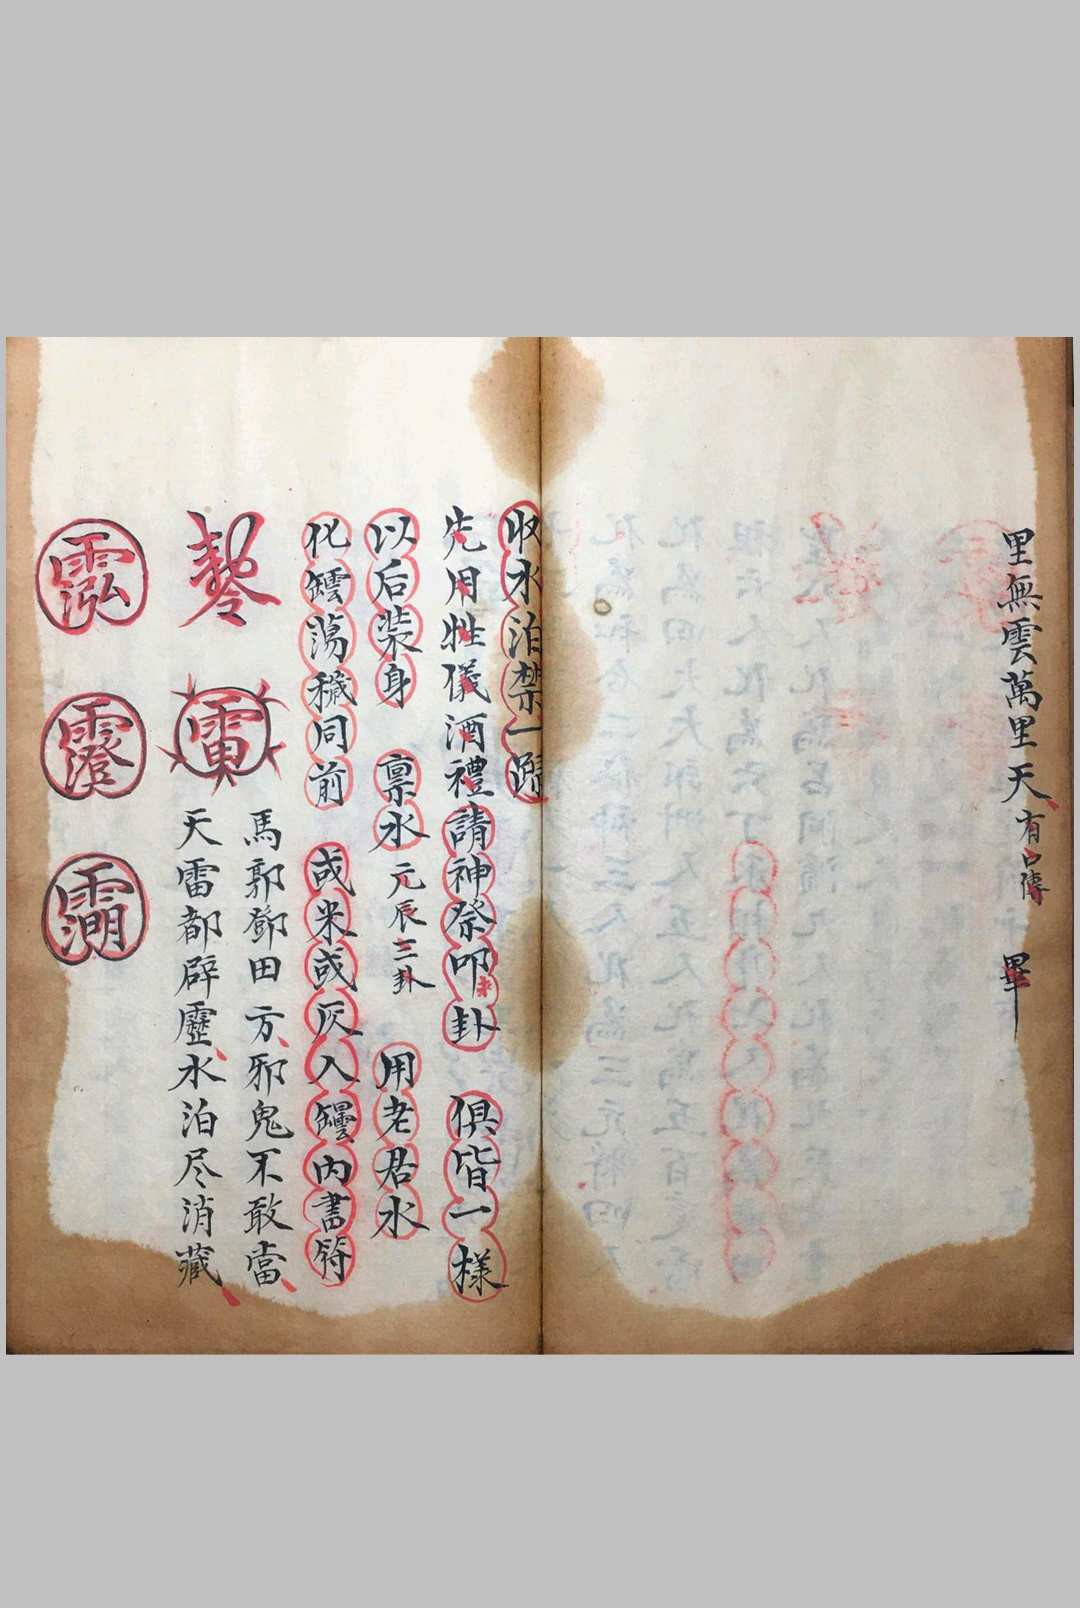 里無雲萬里天有口傳 畢
收水泊禁一蹄
先用牲儀酒禮請神祭叩卦 俱皆一樣
以后裝身 禀水元辰三卦 用老君水
化罎蕩穢同前 或米或灰入罎內書符
馬郭鄧田方邪鬼不敢當
天雷都辟靂水泊尽消藏